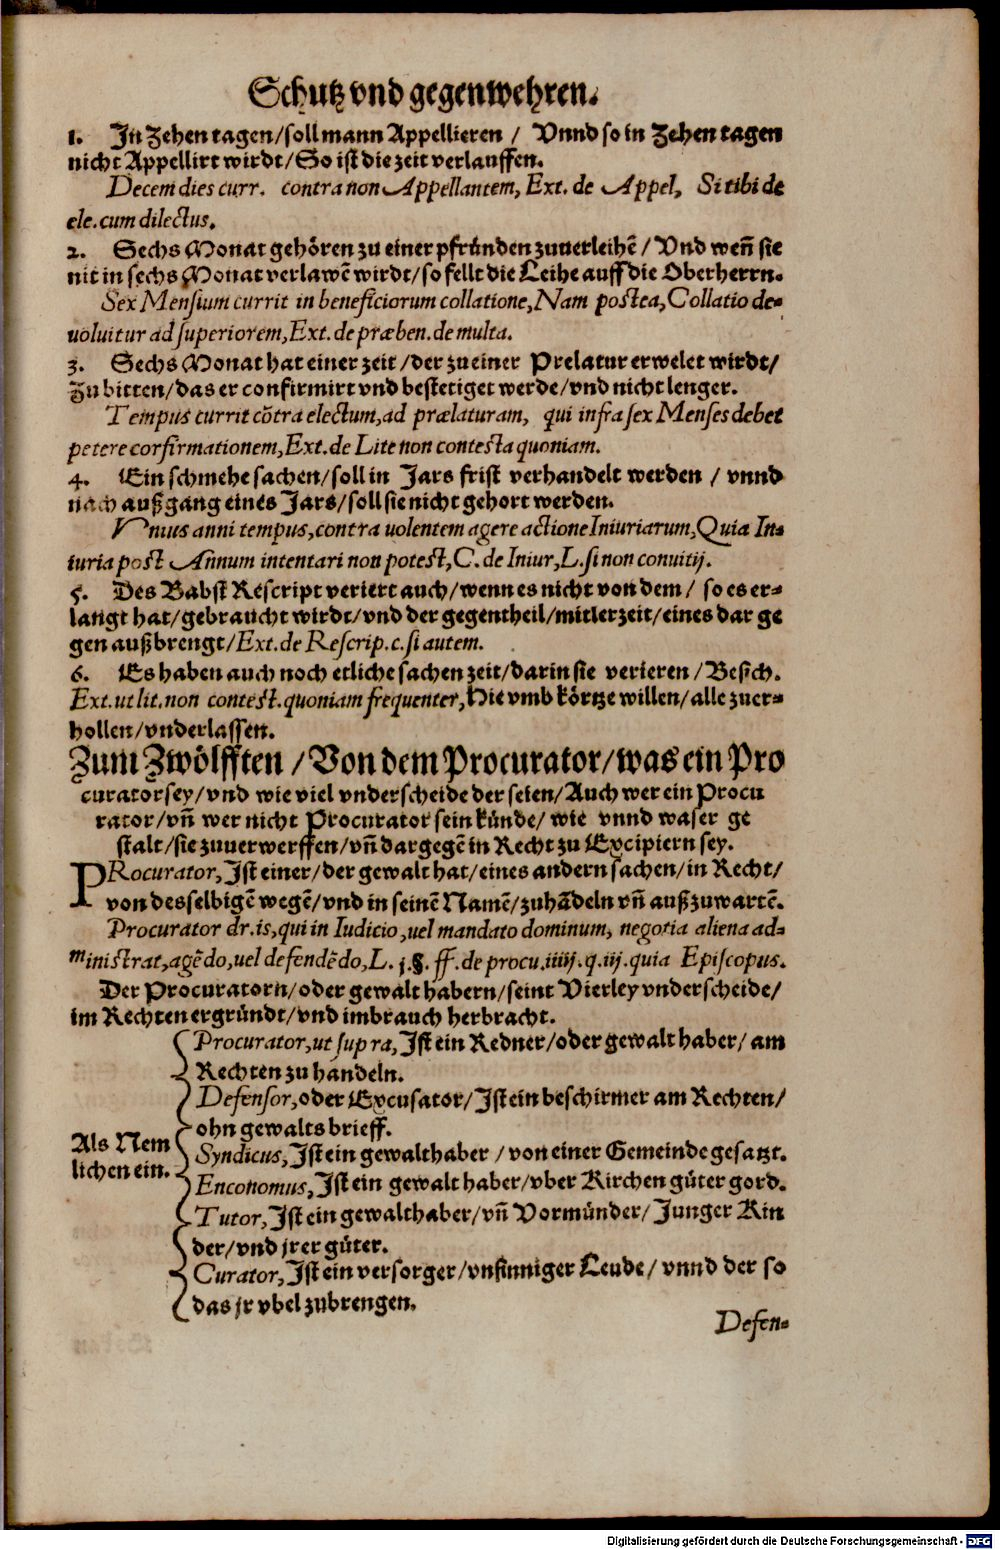 Schutz vnd gegenwehren.
1. In Zehen tagen/soll mann Appellieren / Vnnd so in Zehen tagen
nicht Appellirt wirdt/So ist die zeit verlauffen.
Decem dies curr. contra non Appellantem, Ext. de Appel, Si tibi de
ele. cum dilectus.
2. Sechs Monat gehören zu einer pfründen zuuerleihē/ Vnd weñ sie
nit in sechs Monat verlawē wirdt/so fellt die Leihe auff die Oberherrn.
Sex Mensium currit in beneficiorum collatione, Nam postea, Collatio de-
uoluitur ad superiorem, Ext. de præben. de multa.
3. Sechs Monat hat einer zeit/der zu einer Prelatur erwelet wirdt/
Zu bitten/das er confirmirt vnd bestetiget werde/vnd nicht lenger.
Tempus currit cōtra electum, ad prælaturam, qui infra sex Menses debet
petere corfirmationem, Ext. de Lite non contesta quoniam.
4. Ein schmehe sachen/soll in Jars frist verhandelt werden / vnnd
nach außgang eines Jars/soll sie nicht gehort werden.
Vnius anni tempus, contra uolentem agere actione Iniuriarum, Quia In-
iuria post Annum intentari non potest, C. de Iniur, L. si non conuitij.
5. Des Babst Rescript veriert auch/wenn es nicht von dem / so es er-
langt hat/gebraucht wirdt/vnd der gegentheil/mitlerzeit/eines dar ge
gen außbrengt/Ext. de Rescrip. c. si autem.
6. Es haben auch noch etliche sachen zeit/darin sie verieren/Besich.
Ext. ut lit. non contest. quoniam frequenter, Hie vmb körtze willen/alle zuer-
hollen/vnderlassen.
Zum Zwölfften /Von dem Procurator/was ein Pro
curator sey/vnd wie viel vnderscheide der seien/Auch wer ein Procu
rator/vñ wer nicht Procurator sein künde/ wie vnnd waser ge
stalt/sie zuuerwerffen/vñ dargegē in Recht zu Excipiern sey.
PRocurator, Ist einer/der gewalt hat/eines andern sachen/in Recht/
von desselbigē wegē/vnd in seinē Namē/zuhādeln vñ außzuwartē.
Procurator dr. is, qui in Iudicio, uel mandato dominum, negotia aliena ad-
ministrat, agēdo, uel defendēdo, L. j. §. ff. de procu. iiij. q. iij. quia Episcopus.
Der Procuratorn/oder gewalt habern/seint Vierley vnderscheide/
im Rechten ergründt/vnd im brauch herbracht.
Als Nem
lichen ein.
Procurator, ut supra, Ist ein Redner/oder gewalt haber/ am
Rechten zu handeln.
Defensor, oder Excusator/Ist ein beschirmer am Rechten/
ohn gewalts brieff.
Syndicus, Ist ein gewalthaber /von einer Gemeinde gesatzt.
Enconomus, Ist ein gewalt haber/vber Kirchen güter gord.
Tutor, Ist ein gewalthaber/vñ Vormünder/Junger Kin
der/vnd jrer güter.
Curator, Ist ein versorger/vnsinniger Leude/ vnnd der so
das jr vbel zubrengen.
Defen-
Digitalisierung gefördert durch die Deutsche Forschungsgemeinschaft - DFG